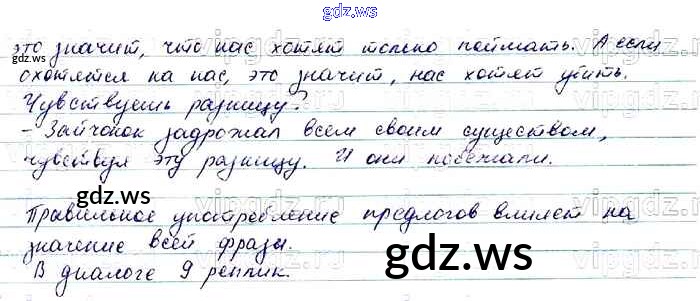 gdz.ws
это значит, что нас хотят только поймать. А если
охотятся на нас, это значит, нас хотят убить.
Чувствуешь разницу?
- Зайчонок задрожал всем своим существом,
чувствуя эту разницу. И они побежали.
gdz.ws
Правильное употребление предлогов влияет на
значение всей фразы.
В диалоге 9 реплик.
gdz.ws